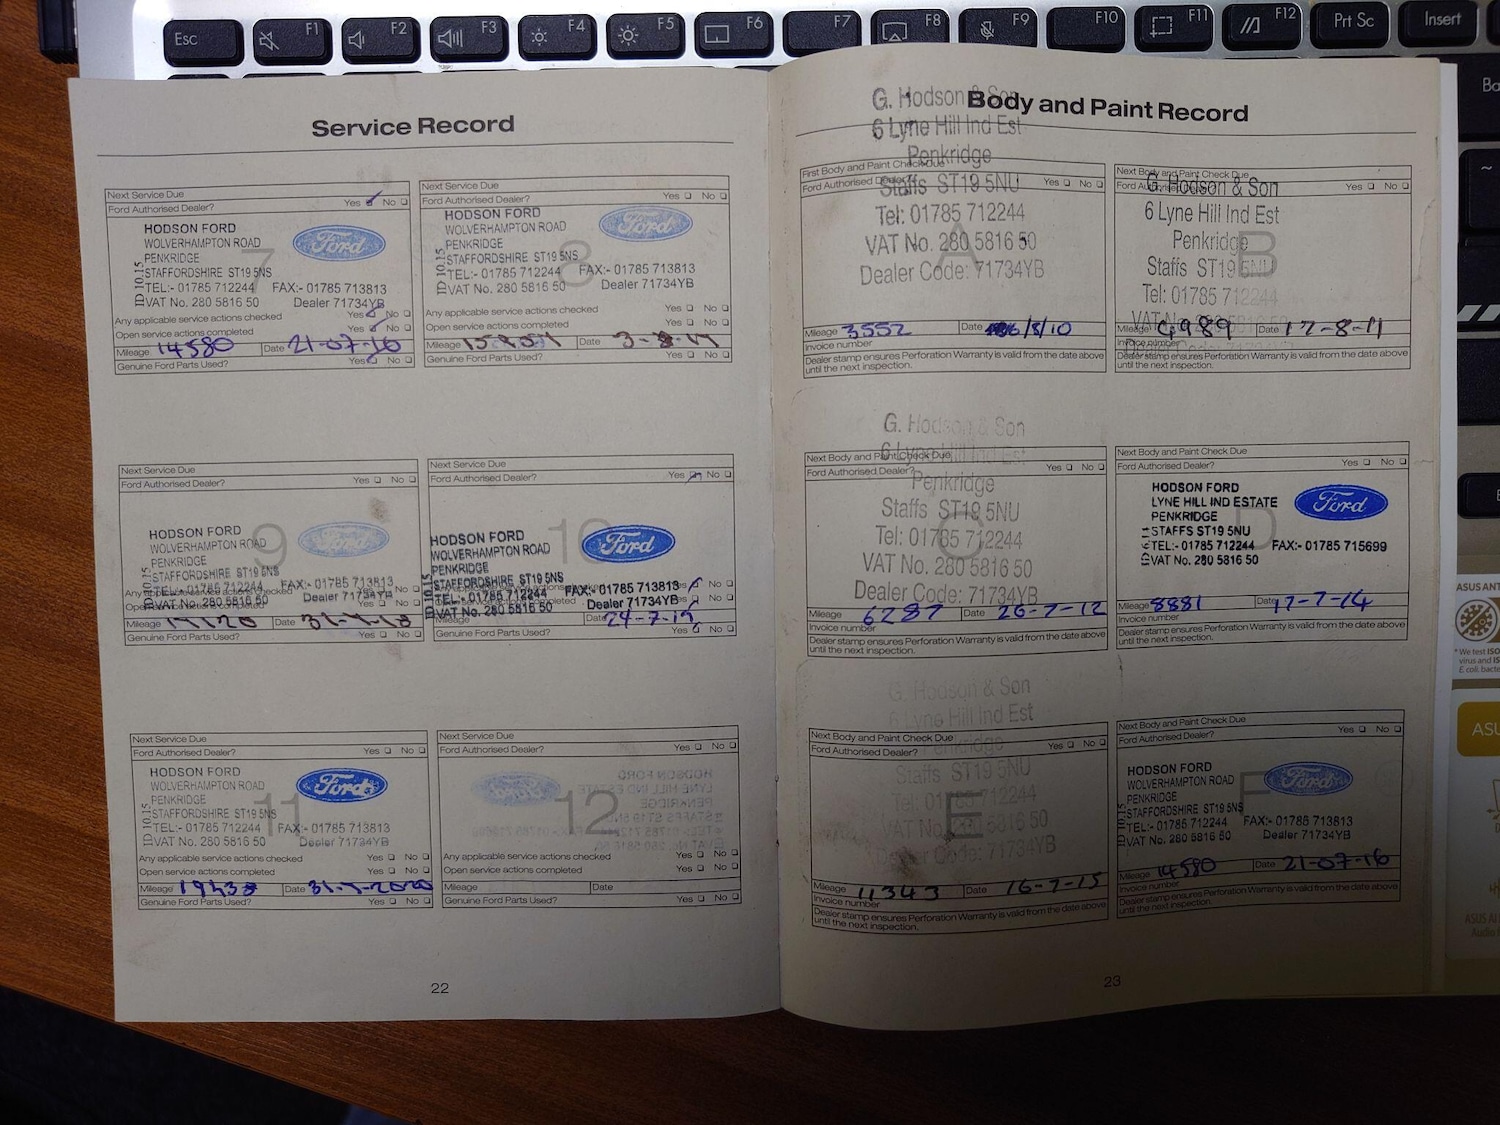 Esc
F1
F2
F3
F4
F5
F6
F7
F8
F9
F10
F11
F12
Prt Sc
Insert
Service Record
Next Service Due
Ford Authorised Dealer? Yes No
HODSON FORD
WOLVERHAMPTON ROAD
PENKRIDGE
STAFFORDSHIRE ST19 5NS
TEL:- 01785 712244 FAX:- 01785 713813
VAT No. 280 5816 50 Dealer 71734YB
ID 10.15
Ford
7
Any applicable service actions checked Yes No
Open service actions completed Yes No
Mileage 14580 Date 21-07-16
Genuine Ford Parts Used? Yes No
Next Service Due
Yes No
HODSON FORD
WOLVERHAMPTON ROAD
PENKRIDGE
STAFFORDSHIRE ST19 5NS
TEL:- 01785 712244 FAX:- 01785 713813
VAT No. 280 5816 50 Dealer 71734YB
ID 10.15
Ford
8
Any applicable service actions checked Yes No
Open service actions completed Yes No
Mileage Date 3-8-17
Genuine Ford Parts Used? Yes No
Next Service Due
Ford Authorised Dealer? Yes No
HODSON FORD
WOLVERHAMPTON ROAD
PENKRIDGE
STAFFORDSHIRE ST19 5NS
TEL:- 01785 712244 FAX:- 01785 713813
VAT No. 280 5816 50 Dealer 71734YB
ID 10.15
Ford
9
Any applicable service actions checked Yes No
Yes No
Mileage Date
Genuine Ford Parts Used? Yes No
Next Service Due
Ford Authorised Dealer? Yes No
HODSON FORD
WOLVERHAMPTON ROAD
PENKRIDGE
STAFFORDSHIRE ST19 5NS
TEL:- 01785 712244 FAX:- 01785 713813
VAT No. 280 5816 50 Dealer 71734YB
ID 10.15
Ford
10
Yes No
Mileage Date 24-7-19
Genuine Ford Parts Used? Yes No
Next Service Due
Ford Authorised Dealer? Yes No
HODSON FORD
WOLVERHAMPTON ROAD
PENKRIDGE
STAFFORDSHIRE ST19 5NS
TEL:- 01785 712244 FAX:- 01785 713813
VAT No. 280 5816 50 Dealer 71734YB
ID 10.15
Ford
11
Any applicable service actions checked Yes No
Open service actions completed Yes No
Mileage Date 31-7-2020
Genuine Ford Parts Used? Yes No
Next Service Due
Ford Authorised Dealer? Yes No
12
Any applicable service actions checked Yes No
Open service actions completed Yes No
Mileage Date
Genuine Ford Parts Used? Yes No
22
Body and Paint Record
G. Hodson & Son
6 Lyne Hill Ind Est
Penkridge
First Body and Paint Check Due
Ford Authorised Dealer? Yes No
Staffs ST19 5NU
Tel: 01785 712244
VAT No. 280 5816 50
Dealer Code: 71734YB
A
Mileage 3552 Date /8/10
Invoice number
Dealer stamp ensures Perforation Warranty is valid from the date above
until the next inspection.
Next Body and Paint Check Due
Yes No
G. Hodson & Son
6 Lyne Hill Ind Est
Penkridge
Staffs ST19 5NU
Tel: 01785 712244
VAT No.
B
Mileage 4989 Date 17-8-11
Invoice number
Dealer stamp ensures Perforation Warranty is valid from the date above
until the next inspection.
G. Hodson & Son
6 Lyne Hill Ind Est
Next Body and Paint Check Due
Ford Authorised Dealer? Yes No
Penkridge
Staffs ST19 5NU
Tel: 01785 712244
VAT No. 280 5816 50
Dealer Code: 71734YB
C
Mileage 6287 Date 26-7-12
Invoice number
Dealer stamp ensures Perforation Warranty is valid from the date above
until the next inspection.
Next Body and Paint Check Due
Ford Authorised Dealer? Yes No
HODSON FORD
LYNE HILL IND ESTATE
PENKRIDGE
STAFFS ST19 5NU
TEL:- 01785 712244 FAX:- 01785 715699
VAT No. 280 5816 50
Ford
D
Mileage 8881 Date 17-7-14
Invoice number
Dealer stamp ensures Perforation Warranty is valid from the date above
until the next inspection.
G. Hodson & Son
6 Lyne Hill Ind Est
Next Body and Paint Check Due
Ford Authorised Dealer? Yes No
Penkridge
Staffs ST19 5NU
Tel: 01785 712244
VAT No. 280 5816 50
Dealer Code: 71734YB
E
Mileage 11343 Date 16-7-15
Invoice number
Dealer stamp ensures Perforation Warranty is valid from the date above
until the next inspection.
Next Body and Paint Check Due
Ford Authorised Dealer? Yes No
HODSON FORD
WOLVERHAMPTON ROAD
PENKRIDGE
STAFFORDSHIRE ST19 5NS
TEL:- 01785 712244 FAX:- 01785 713813
VAT No. 280 5816 50 Dealer 71734YB
ID 10.15
Ford
F
Mileage 14580 Date 21-07-16
Invoice number
Dealer stamp ensures Perforation Warranty is valid from the date above
until the next inspection.
23
ASUS ANT
* We test ISO
virus and IS
E coli. bacte
ASU
ASUS AI
Audio